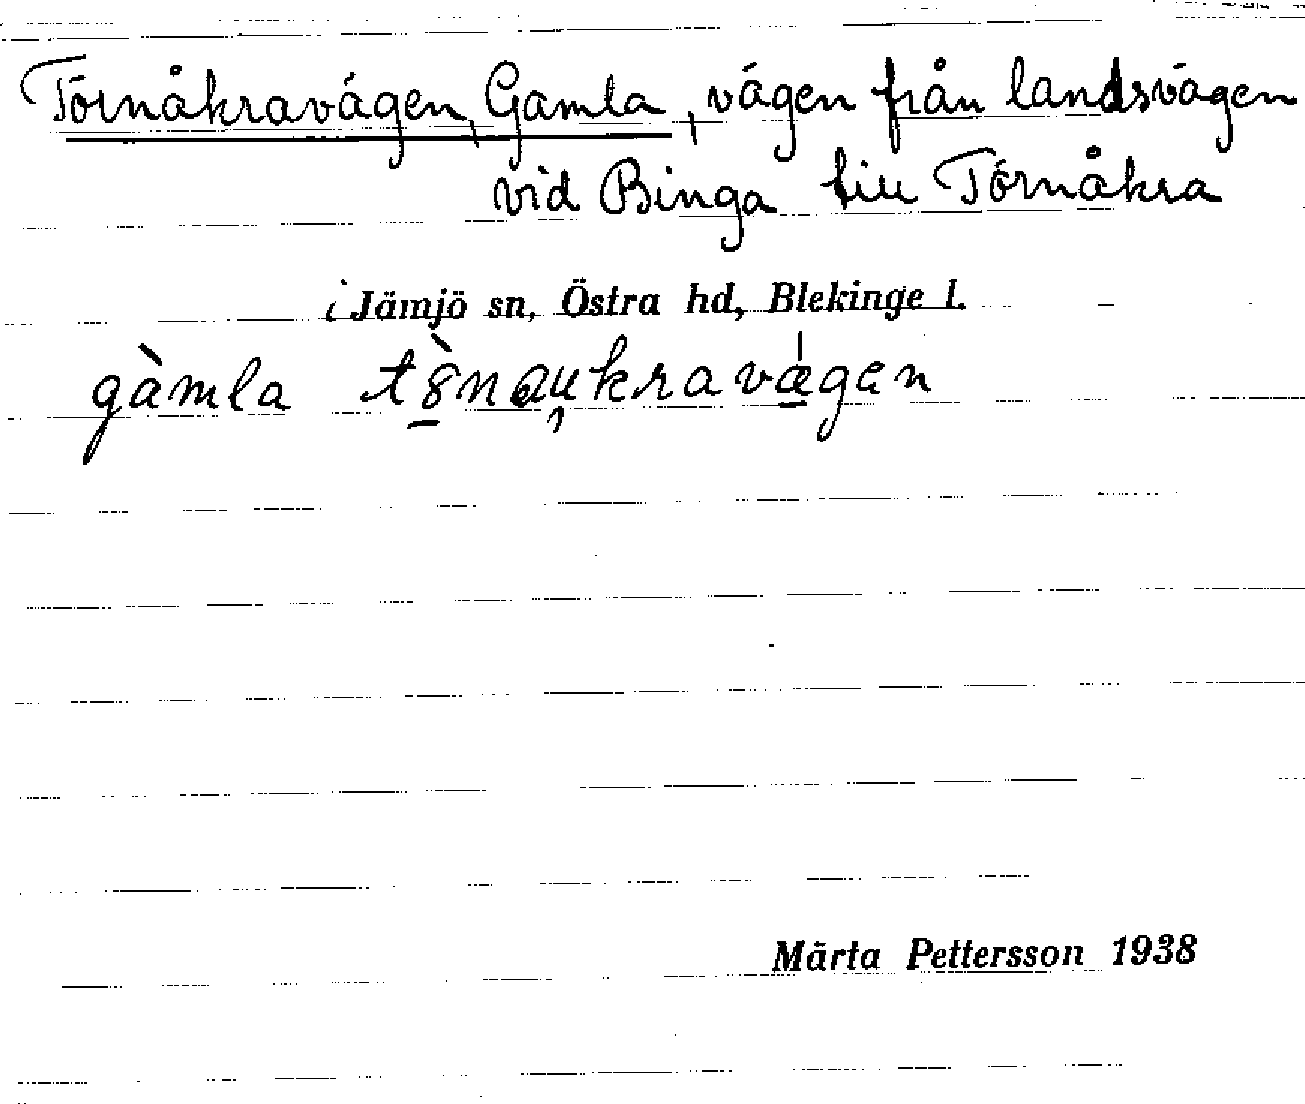 Törnåkravägen, Gamla, vägen från landsvägen
vid Binga till Törnåkra
i Jämjö sn, Östra hd, Blekinge l.
gàmla
Märta Pettersson 1938